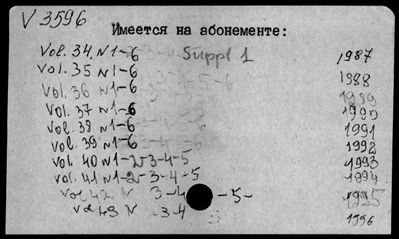 V 3596
Имеется на абонементе:
Vol. 34, N 1-6 Suppl 1 1987
Vol. 35 N 1-6 1988
Vol. 36 N 1-6 1989
Vol. 37 N 1-6 1990
Vol. 38 N 1-6 1991
Vol. 39 N 1-6 1992
Vol. 40 N 1-2-3-4-5 1993
Vol. 41 N 1-2-3-4-5 1994
Vol 42 N 3-4 -5- 1995
Vol 43 N 3-4 1996